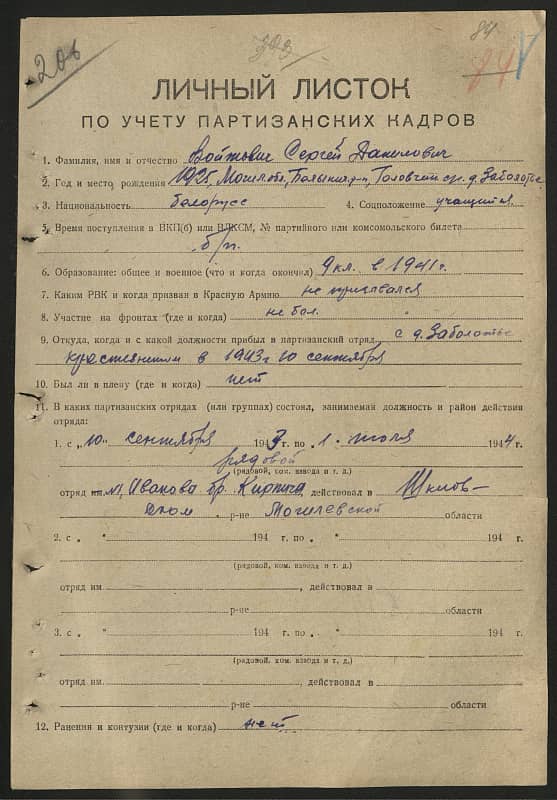 206
84
84
ЛИЧНЫЙ ЛИСТОК
ПО УЧЕТУ ПАРТИЗАНСКИХ КАДРОВ
1. Фамилия, имя и отчество Войтович Сергей Данилович
2. Год и место рождения 1925, Могил. обл., р-н, с/с. д. Заболотье
3. Национальность белорусс 4. Соцположение учащийся
5. Время поступления в ВКП(б) или ВЛКСМ, № партийного или комсомольского билета
б/п.
6. Образование: общее и военное (что и когда окончил) 9 кл. в 1941 г.
7. Каким РВК и когда призван в Красную Армию не призвался
8. Участие на фронтах (где и когда) не был.
9. Откуда, когда и с какой должности прибыл в партизанский отряд с д. Заболотье
крестьянином в 1943 г 10 сентября
10. Был ли в плену (где и когда) нет
11. В каких партизанских отрядах (или группах) состоял, занимаемая должность и район действия
отряда:
1. с „10" сентября 1943 г. по „1" июля 1944 г.
рядовой
(рядовой, ком. взвода и т. д.)
отряд им. №1, Иванова бр. Кирпича, действовал в Шклов-
ском р-не Могилевской области
2. с „ " 194 г. по „ " 194 г.
(рядовой, ком. взвода и т. д.)
отряд им. , действовал в
р-не области
3. с „ " 194 г. по „ " 194 г.
(рядовой, ком. взвода и т. д.)
отряд им. , действовал в
р-не области
12. Ранения и контузии (где и когда) нет